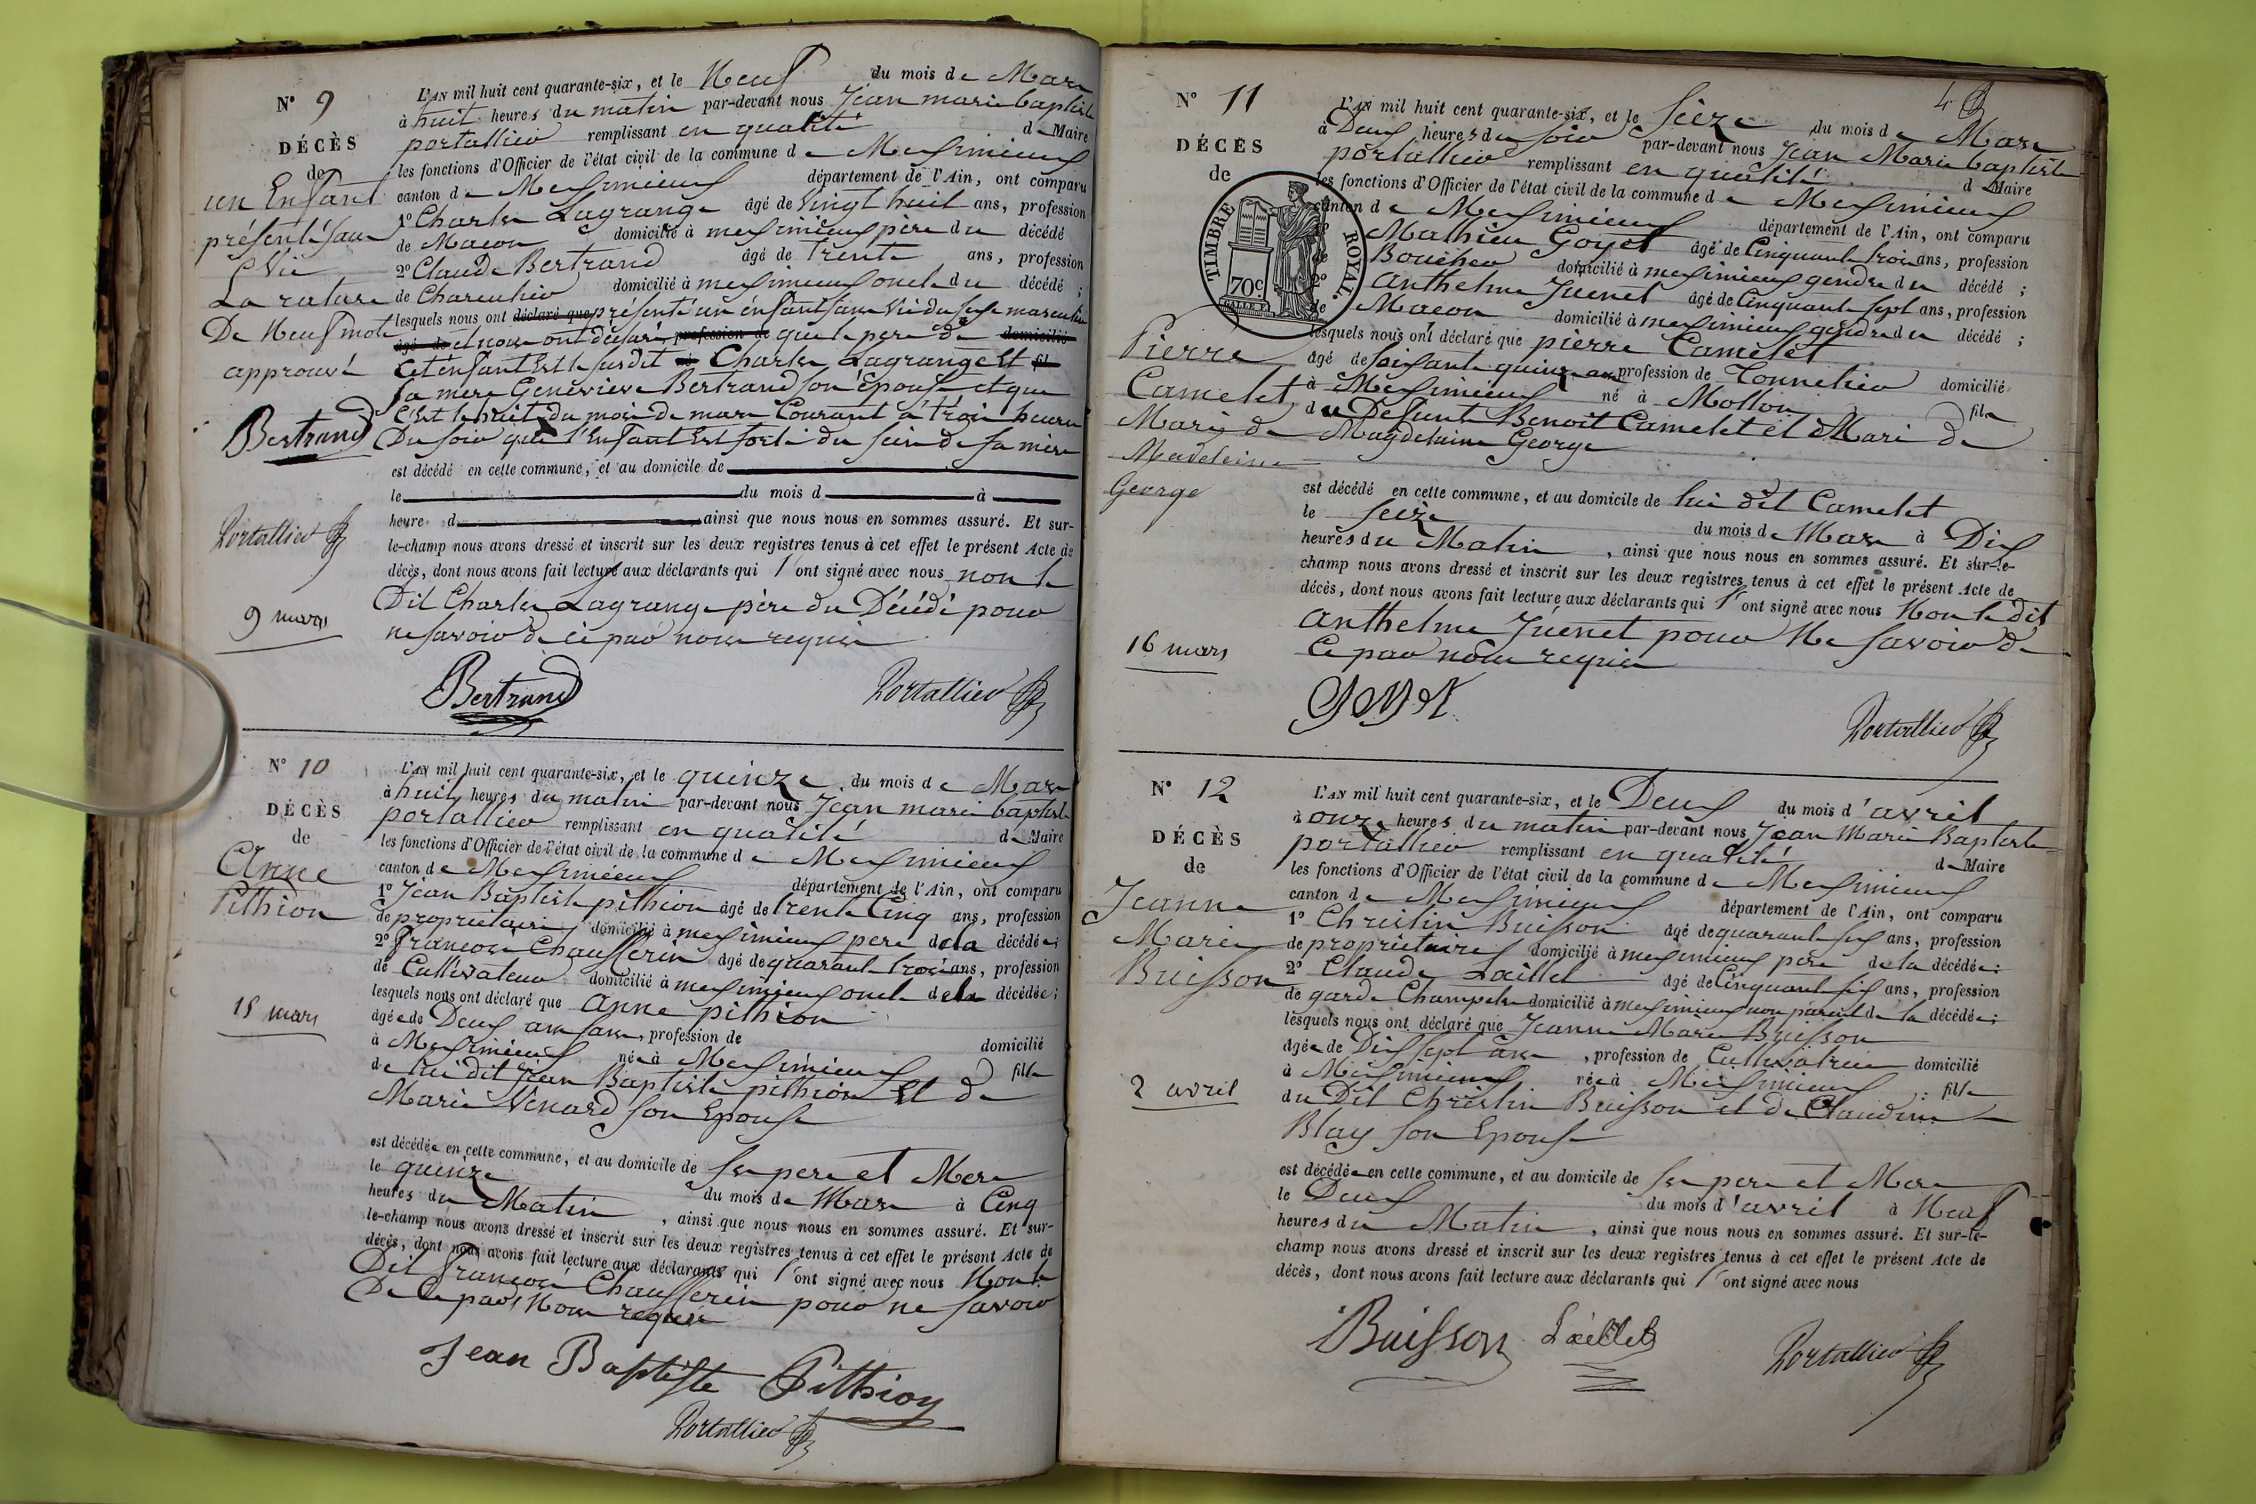 N° 9
DÉCÈS
de
un Enfant
présenté sans
Vie
La rature
De Neuf mots
approuvé
Bertrand
Portallier
9 mars
L'AN mil huit cent quarante-six, et le Neuf du mois de Mars
à huit heures du matin par-devant nous Jean marie baptiste
portallier remplissant en qualité de Maire
les fonctions d'Officier de l'état civil de la commune de Meximieux
canton de Meximieux département de l'Ain, ont comparu
1° Charles Lagrange âgé de vingt huit ans, profession
de Macon domicilié à meximieux père du décédé
2° Claude Bertrand âgé de trente ans, profession
de Charcutier domicilié à meximieux oncle du décédé ;
lesquels nous ont déclaré que présenté un enfant sans Vie du sexe masculin
âgé de et nous ont déclaré profession de que le pere de domicilié
cet enfant Est le susdit à Charles Lagrange Et fil
sa mere Geneviève Bertrand son épouse et que
C'Est le huit du mois de mars Courant à trois heures
Du soir que l'Enfant Est sorti du sein de sa mère
est décédé en cette commune, et au domicile de
le du mois d à
heure d ainsi que nous nous en sommes assuré. Et sur-
le-champ nous avons dressé et inscrit sur les deux registres tenus à cet effet le présent Acte de
décès, dont nous avons fait lecture aux déclarants qui l'ont signé avec nous non le
Dit Charles Lagrange père du Décédé pour
ne savoir de ce par nous requis
Bertrand Portallier
N° 10
DÉCÈS
de
Anne
Pithion
15 mars
L'AN mil huit cent quarante-six, et le quinze du mois de Mars
à huit heures du matin par-devant nous Jean marie baptiste
portallier remplissant en qualité de Maire
les fonctions d'Officier de l'état civil de la commune de Meximieux
canton de Meximieux département de l'Ain, ont comparu
1° Jean Baptiste pithion âgé de trente Cinq ans, profession
de proprietaire domicilié à meximieux pere de la décédée;
2° françois Chausserin âgé de quarante trois ans, profession
de Cultivateur domicilié à meximieux oncle de la décédée;
lesquels nous ont déclaré que anne pithion
âgée de Deux ans sans, profession de domicilié
à Meximieux née à Meximieux fille
de lui dit Jean Baptiste pithion Et de
Marie Venard son Epouse
est décédée en cette commune, et au domicile de ses pere et Mere
le quinze du mois de Mars à Cinq
heures du Matin, ainsi que nous nous en sommes assuré. Et sur-
le-champ nous avons dressé et inscrit sur les deux registres tenus à cet effet le présent Acte de
décès, dont nous avons fait lecture aux déclarants qui l'ont signé avec nous Non le
Dit françois Chausserin pour ne savoir
De Ce par Nous requis
Jean Baptiste Pithion
Portallier
4
N° 11
DÉCÈS
de
TIMBRE ROYAL.
70c
Pierre
Camelet
Mari de
Madeleine
George
16 mars
L'AN mil huit cent quarante-six, et le Seize du mois de Mars
à Deux heures du soir par-devant nous Jean Marie baptiste
portallier remplissant en qualité de Maire
les fonctions d'Officier de l'état civil de la commune de Meximieux
canton de Meximieux département de l'Ain, ont comparu
1° Mathieu Goyet âgé de Cinquante trois ans, profession
de Boucher domicilié à meximieux gendre du décédé ;
2° Anthelme Juenet âgé de Cinquante sept ans, profession
de Macon domicilié à meximieux gendre du décédé ;
lesquels nous ont déclaré que pierre Camelet
âgé de soisante quinze ans profession de Tonnelier domicilié
à Meximieux né à Mollon fils
du Defunt Benoit Camelet et Mari de
Magdelaine George
est décédé en cette commune, et au domicile de lui dit Camelet
le seize du mois de Mars à Dix
heures du Matin, ainsi que nous nous en sommes assuré. Et sur-le-
champ nous avons dressé et inscrit sur les deux registres tenus à cet effet le présent Acte de
décès, dont nous avons fait lecture aux déclarants qui l'ont signé avec nous Non le dit
anthelme Juenet pour Ne savoir de
Ce par nous requis
Goyet
Portallier
N° 12
DÉCÈS
de
Jeanne
Marie
Buisson
2 avril
L'AN mil huit cent quarante-six, et le Deux du mois d'avril
à onze heures du matin par-devant nous Jean Marie Baptiste
portallier remplissant en qualité de Maire
les fonctions d'Officier de l'état civil de la commune de Meximieux
canton de Meximieux département de l'Ain, ont comparu
1° Christin Buisson âgé de quarante six ans, profession
de proprietaire domicilié à meximieux pere de la décédée;
2° Claude Laillet âgé de Cinquante six ans, profession
de garde Champetre domicilié à meximieux non parent de la décédée;
lesquels nous ont déclaré que Jeanne Marie Buisson
âgée de Dix sept ans, profession de Cultivatrice domicilié
à Meximieux née à Meximieux fille
du Dit Christin Buisson et de Claudine
Blay son Epouse
est décédée en cette commune, et au domicile de ses pere et Mere
le Deux du mois d'avril à Neuf
heures du Matin, ainsi que nous nous en sommes assuré. Et sur-le-
champ nous avons dressé et inscrit sur les deux registres tenus à cet effet le présent Acte de
décès, dont nous avons fait lecture aux déclarants qui l'ont signé avec nous
Buisson Laillet Portallier